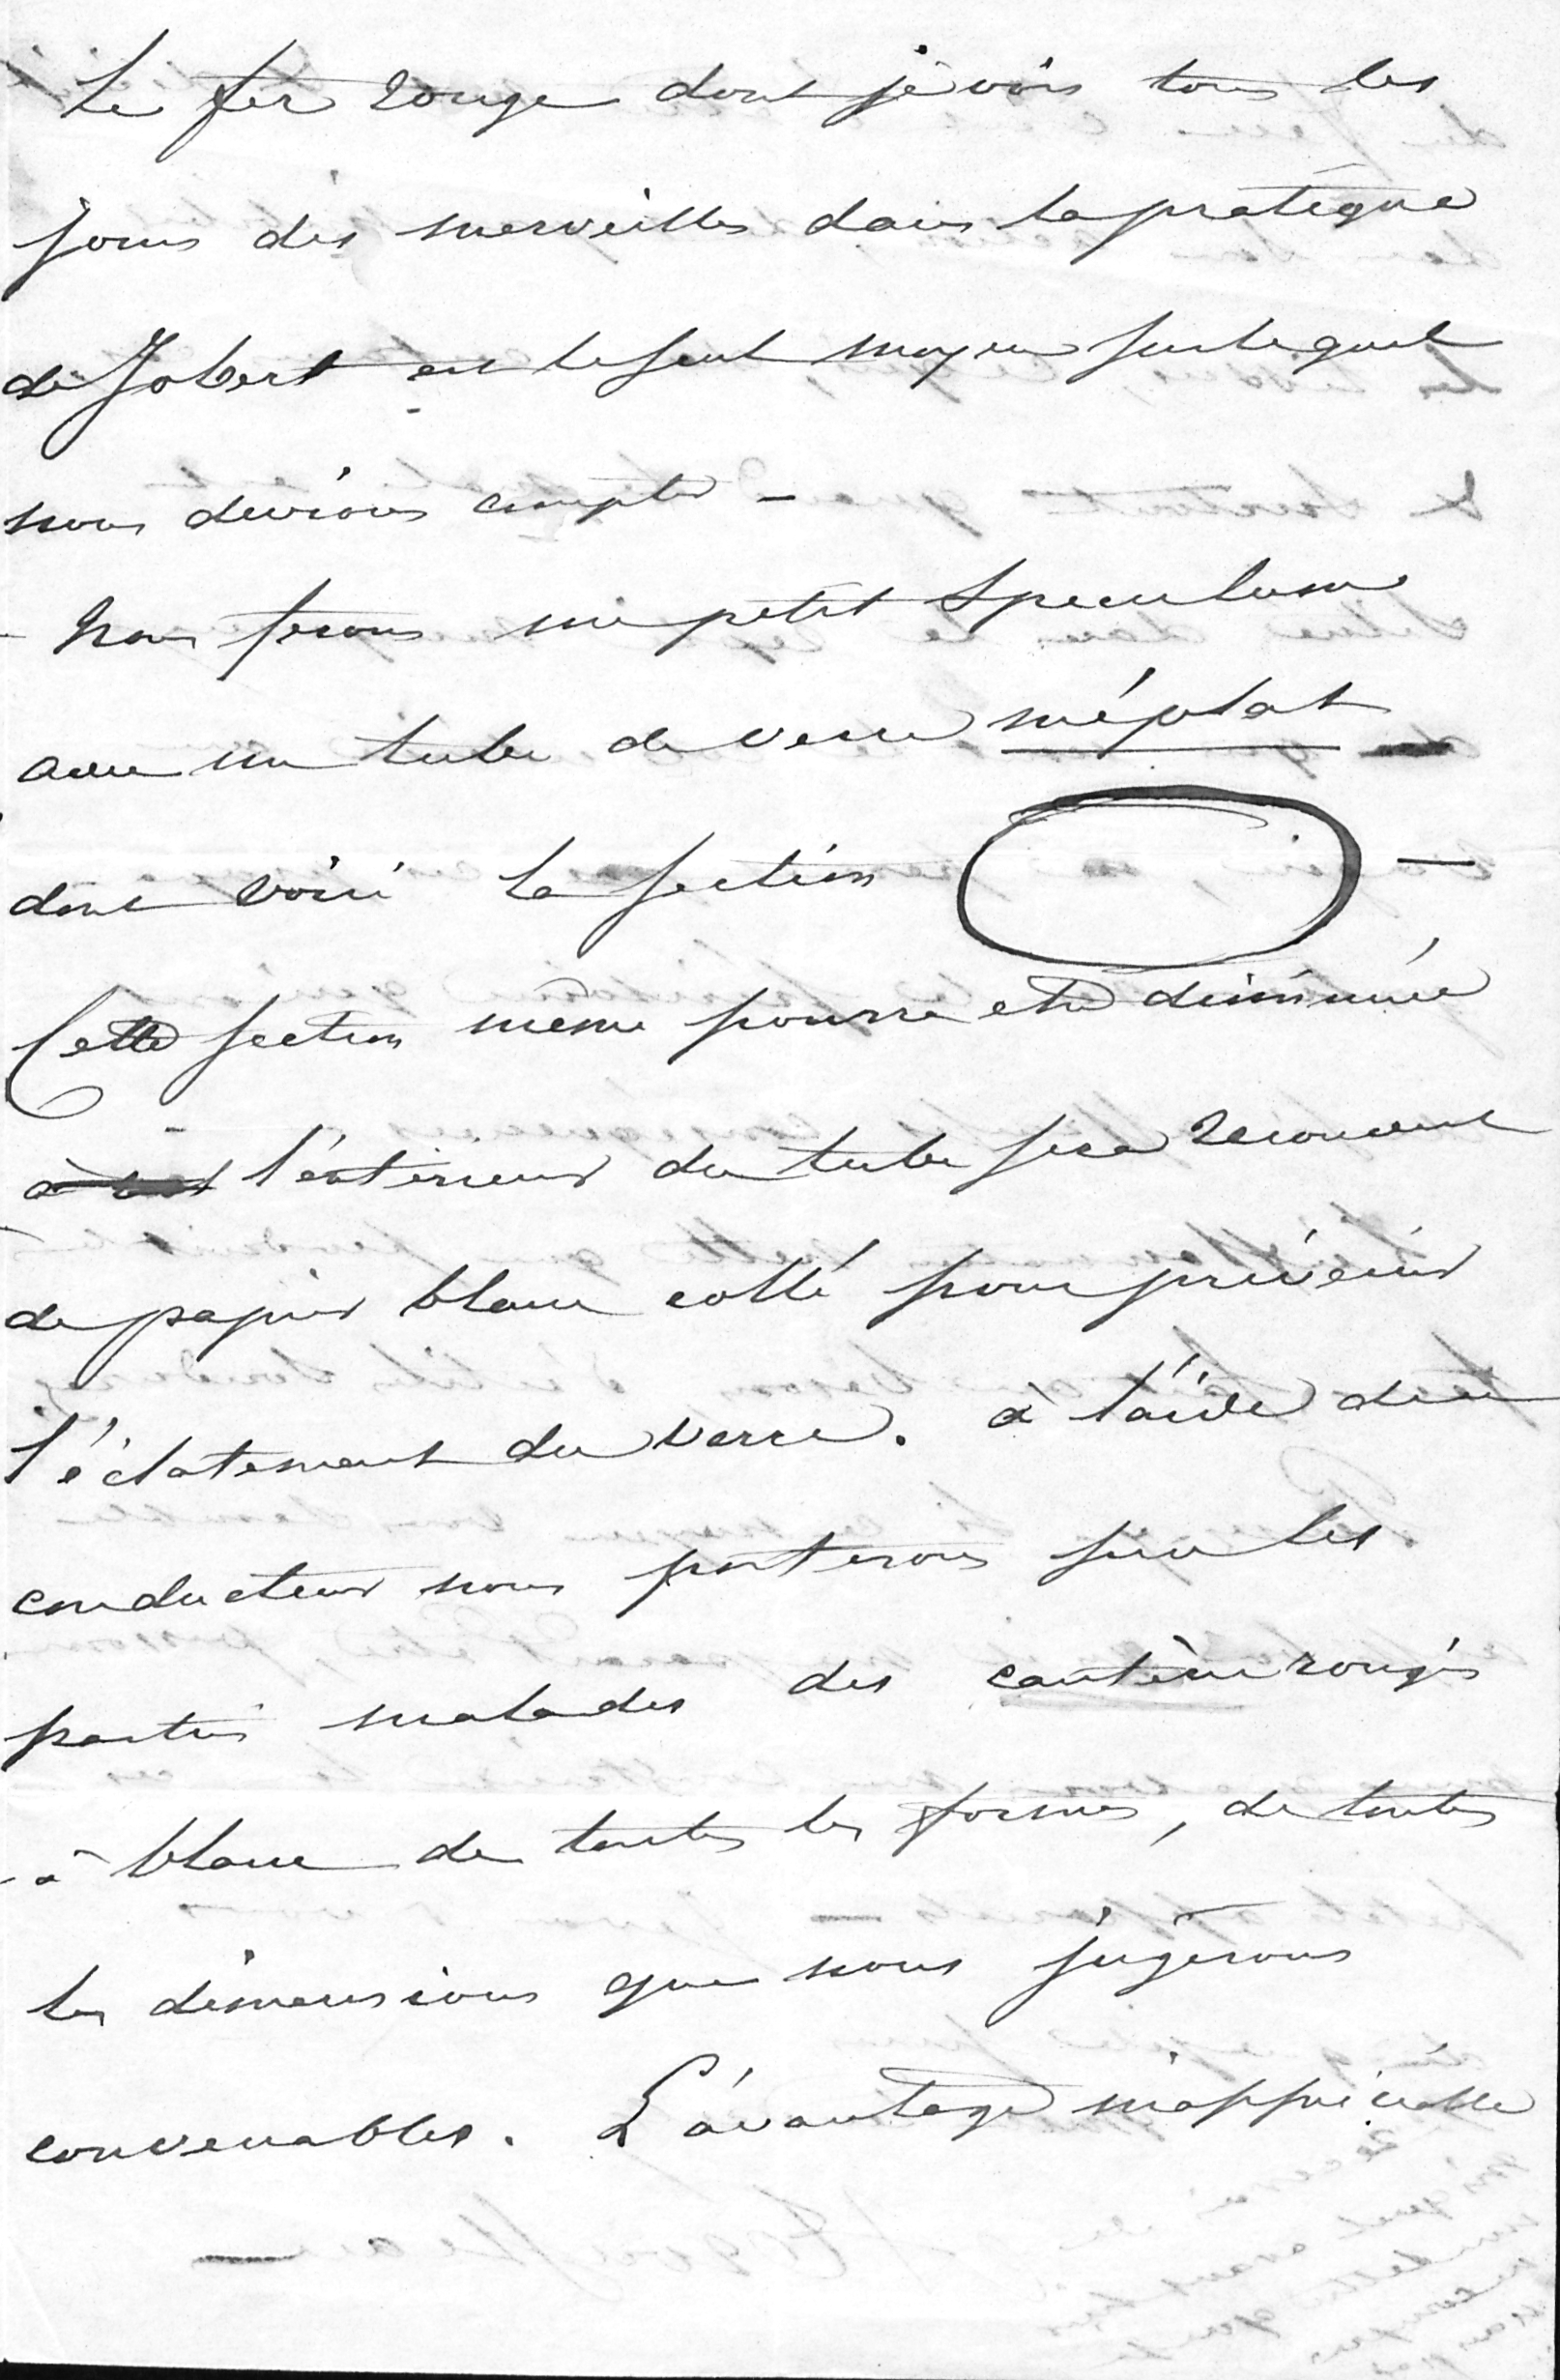 Le fer rouge dont je vois tous les
jours des merveilles dans la pratique
de Jobert est le seul moyen sur lequel
nous devions compter –
– Nous ferons un petit speculum
avec un tube de verre méplat
dont voici la section —
Cette section même pourra etre diminuée
à l'extérieur du tube sera recouvert
de papier blanc collé pour prévenir
l'éclatement du verre. à l'aide du
conducteur nous porterons sur les
parties malades des cautères rougis
à blanc de toutes les formes, de toutes
les dimensions que nous jugerons
convenables. L'avantage inappréciable